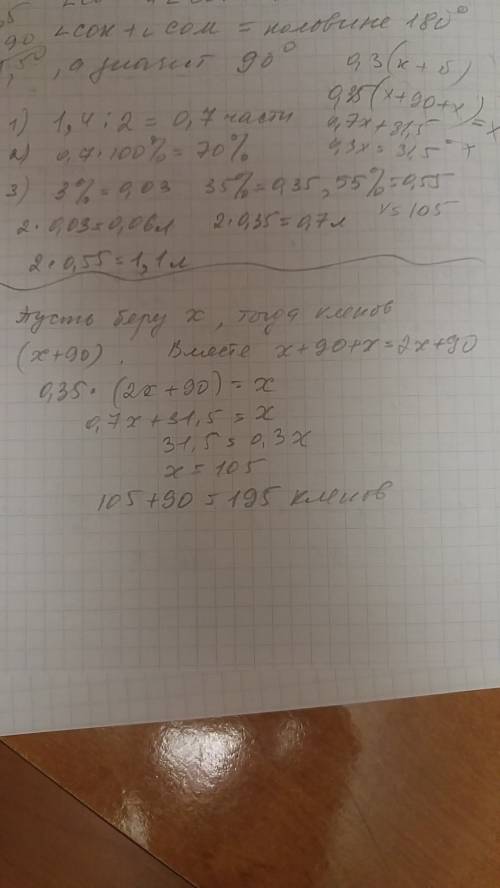 90 ∠СОК + ∠СОМ = половине 180°
, а значит 90°
0,3(x + 5)
0,35(x+90+x) = x
0,7x + 31,5
0,3x = 31,5
x = 105
1) 1,4 : 2 = 0,7 части
2) 0,7 · 100% = 70%
3) 3% = 0,03 35% = 0,35, 55% = 0,55
2 · 0,03 = 0,06 л 2 · 0,35 = 0,7 л
2 · 0,55 = 1,1 л
Пусть беру x, тогда кленов
(x+90). Вместе x+90+x=2x+90
0,35 · (2x+90) = x
0,7x+31,5 = x
31,5 = 0,3x
x = 105
105+90 = 195 кленов